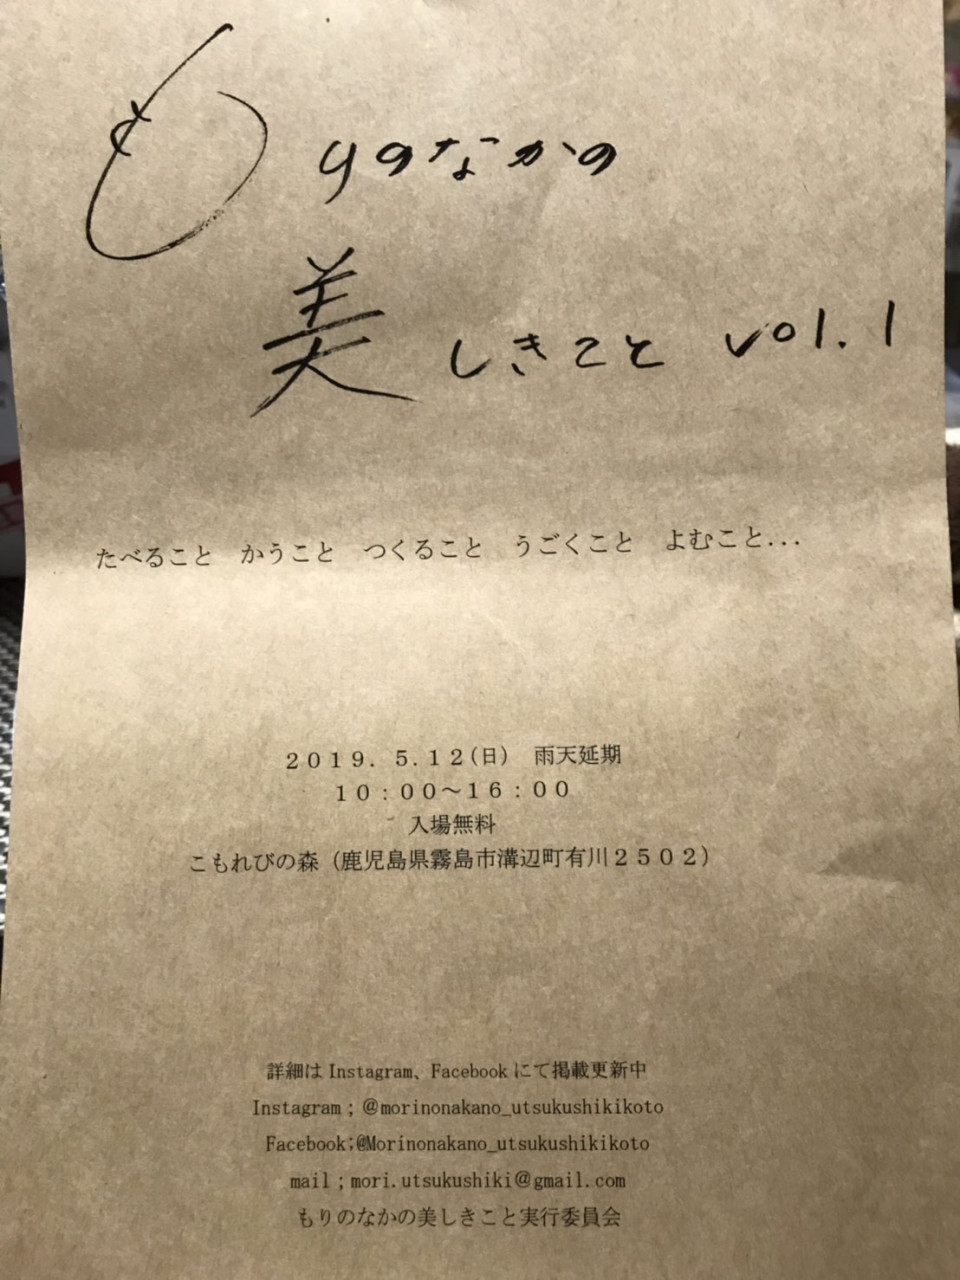 もりのなかの
美しきこと vol.1
たべること　かうこと　つくること　うごくこと　よむこと...
２０１９．５.１２(日)　雨天延期
１０：００～１６：００
入場無料
こもれびの森（鹿児島県霧島市溝辺町有川２５０２）
詳細は Instagram、Facebook にて掲載更新中
Instagram；＠morinonakano_utsukushikikoto
Facebook;@Morinonakano_utsukushikikoto
mail；mori.utsukushiki＠gmail.com
もりのなかの美しきこと実行委員会